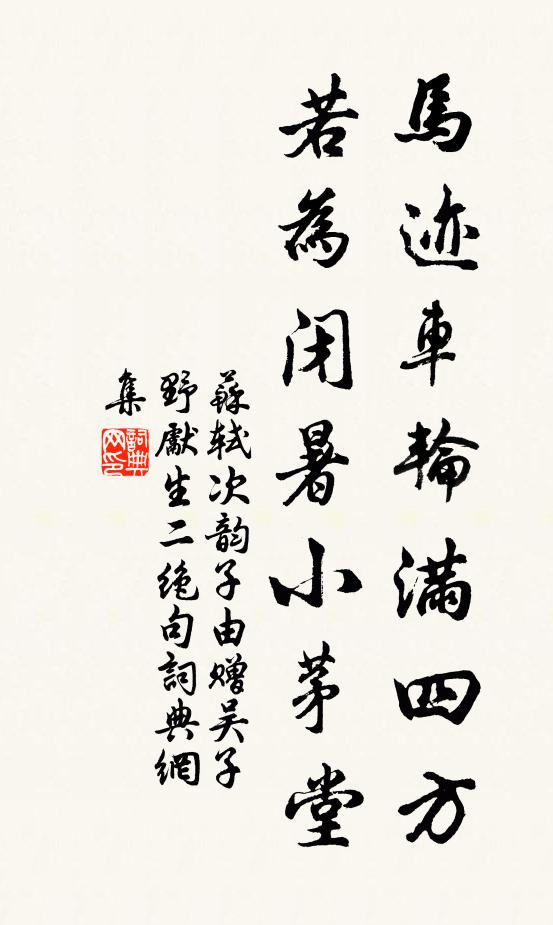 馬迹車輪滿四方
若為閉暑小茅堂
蘇軾次韵子由赠吴子
野獻生二絶句詞典網
集
詞典网印